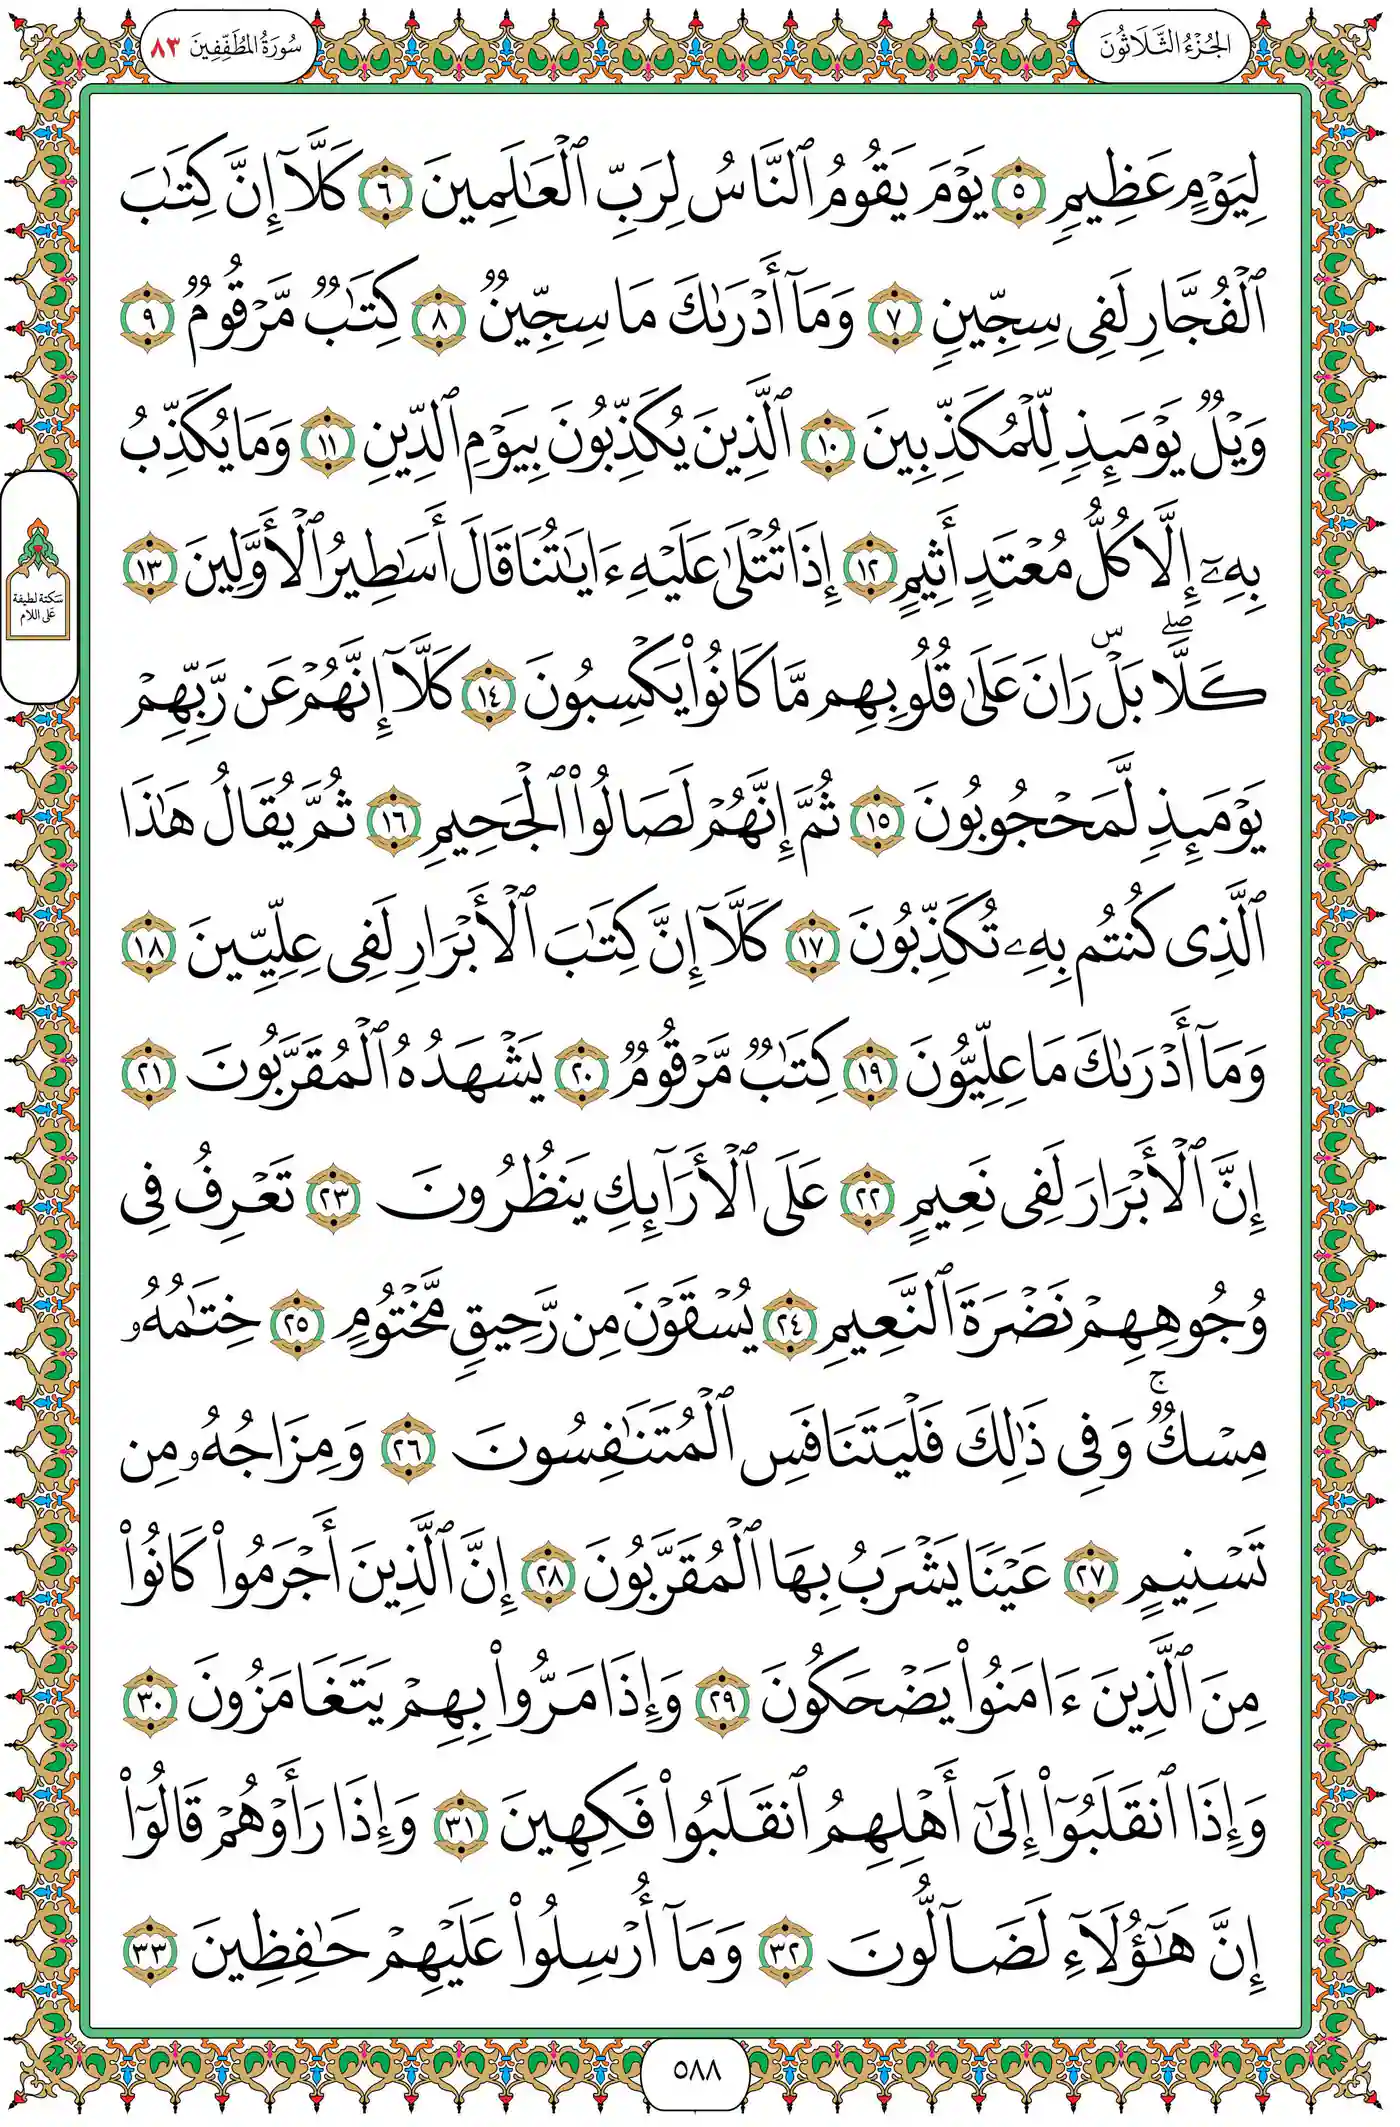 الجُزْءُ الثَّلَاثُونَ
سُورَةُ المُطَفِّفِينَ ٨٣
لِيَوْمٍ عَظِيمٍ ٥ يَوْمَ يَقُومُ ٱلنَّاسُ لِرَبِّ ٱلْعَٰلَمِينَ ٦ كَلَّآ إِنَّ كِتَٰبَ
ٱلْفُجَّارِ لَفِى سِجِّينٍ ٧ وَمَآ أَدْرَىٰكَ مَا سِجِّينٌ ٨ كِتَٰبٌ مَّرْقُومٌ ٩
وَيْلٌ يَوْمَئِذٍ لِّلْمُكَذِّبِينَ ١٠ ٱلَّذِينَ يُكَذِّبُونَ بِيَوْمِ ٱلدِّينِ ١١ وَمَا يُكَذِّبُ
بِهِۦٓ إِلَّا كُلُّ مُعْتَدٍ أَثِيمٍ ١٢ إِذَا تُتْلَىٰ عَلَيْهِ ءَايَٰتُنَا قَالَ أَسَٰطِيرُ ٱلْأَوَّلِينَ ١٣
سَكتة لطيفة
عَلى اللام
كَلَّاۖ بَلْۜ رَانَ عَلَىٰ قُلُوبِهِم مَّا كَانُوا۟ يَكْسِبُونَ ١٤ كَلَّآ إِنَّهُمْ عَن رَّبِّهِمْ
يَوْمَئِذٍ لَّمَحْجُوبُونَ ١٥ ثُمَّ إِنَّهُمْ لَصَالُوا۟ ٱلْجَحِيمِ ١٦ ثُمَّ يُقَالُ هَٰذَا
ٱلَّذِى كُنتُم بِهِۦ تُكَذِّبُونَ ١٧ كَلَّآ إِنَّ كِتَٰبَ ٱلْأَبْرَارِ لَفِى عِلِّيِّينَ ١٨
وَمَآ أَدْرَىٰكَ مَا عِلِّيُّونَ ١٩ كِتَٰبٌ مَّرْقُومٌ ٢٠ يَشْهَدُهُ ٱلْمُقَرَّبُونَ ٢١
إِنَّ ٱلْأَبْرَارَ لَفِى نَعِيمٍ ٢٢ عَلَى ٱلْأَرَآئِكِ يَنظُرُونَ ٢٣ تَعْرِفُ فِى
وُجُوهِهِمْ نَضْرَةَ ٱلنَّعِيمِ ٢٤ يُسْقَوْنَ مِن رَّحِيقٍ مَّخْتُومٍ ٢٥ خِتَٰمُهُۥ
مِسْكٌۚ وَفِى ذَٰلِكَ فَلْيَتَنَافَسِ ٱلْمُتَنَٰفِسُونَ ٢٦ وَمِزَاجُهُۥ مِن
تَسْنِيمٍ ٢٧ عَيْنًا يَشْرَبُ بِهَا ٱلْمُقَرَّبُونَ ٢٨ إِنَّ ٱلَّذِينَ أَجْرَمُوا۟ كَانُوا۟
مِنَ ٱلَّذِينَ ءَامَنُوا۟ يَضْحَكُونَ ٢٩ وَإِذَا مَرُّوا۟ بِهِمْ يَتَغَامَزُونَ ٣٠
وَإِذَا ٱنقَلَبُوٓا۟ إِلَىٰٓ أَهْلِهِمُ ٱنقَلَبُوا۟ فَكِهِينَ ٣١ وَإِذَا رَأَوْهُمْ قَالُوٓا۟
إِنَّ هَٰٓؤُلَآءِ لَضَآلُّونَ ٣٢ وَمَآ أُرْسِلُوا۟ عَلَيْهِمْ حَٰفِظِينَ ٣٣
٥٨٨